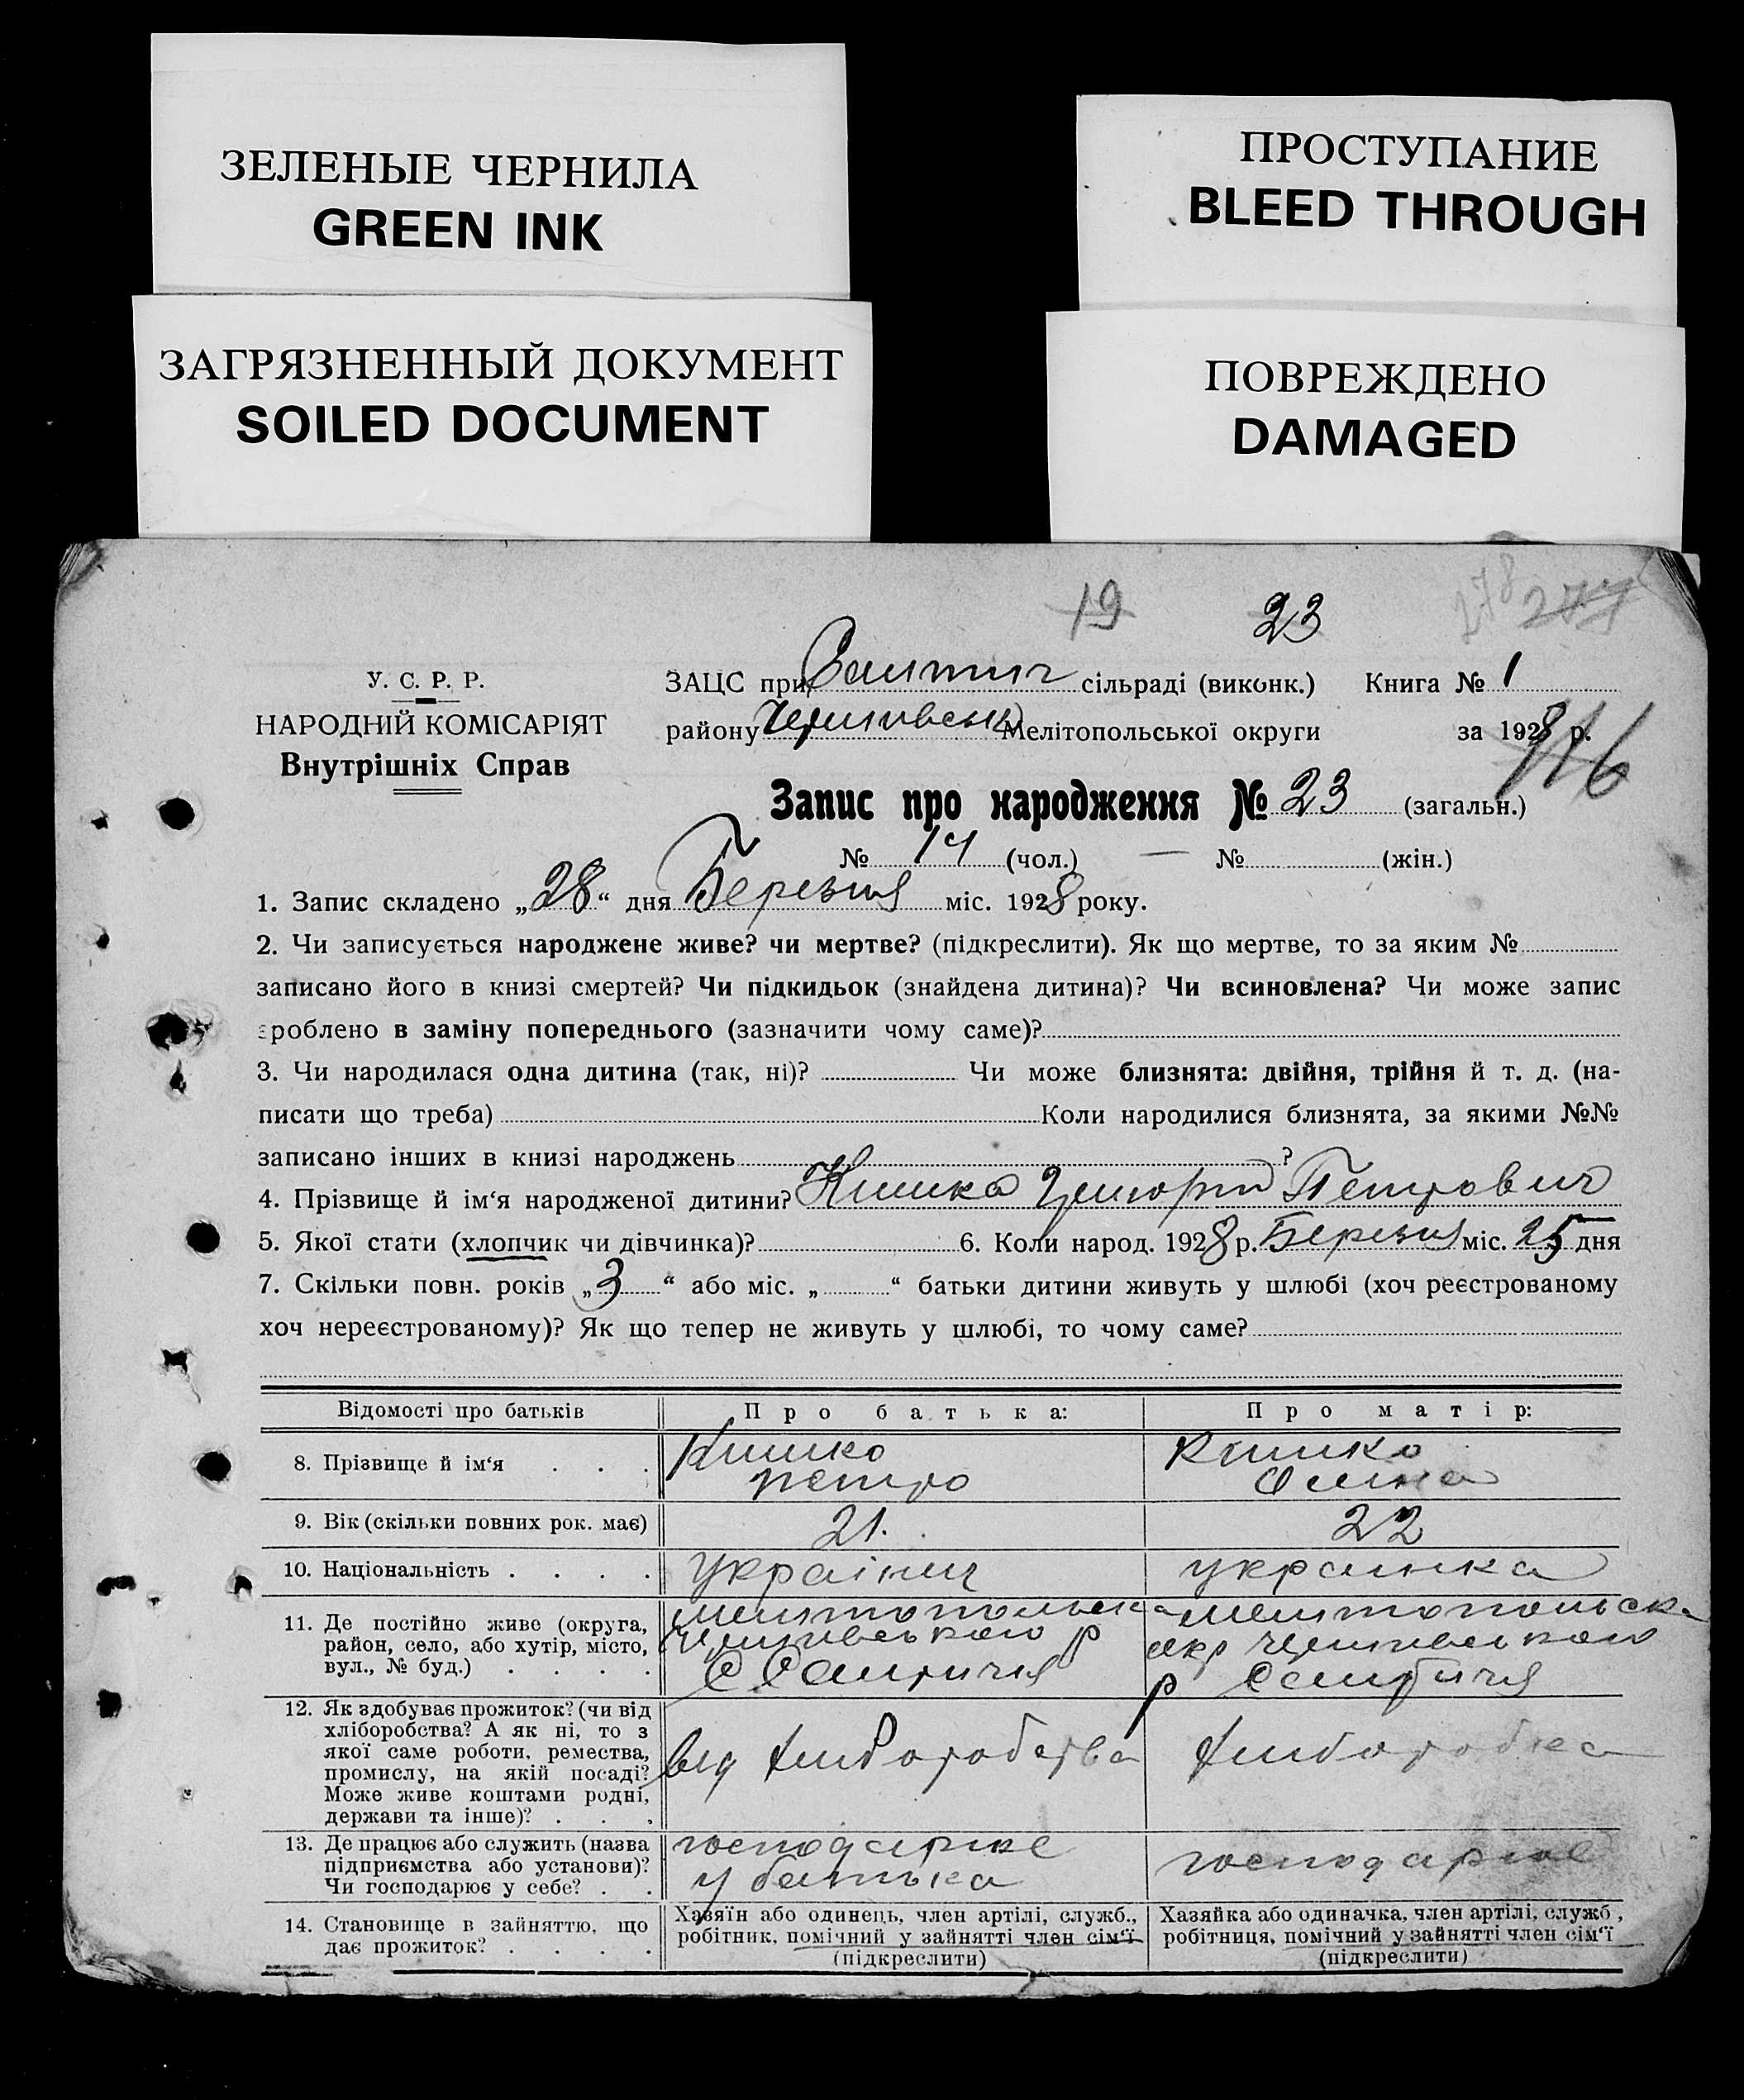 ЗЕЛЕНЫЕ ЧЕРНИЛА
GREEN INK
ПРОСТУПАНИЕ
BLEED THROUGH
ЗАГРЯЗНЕННЫЙ ДОКУМЕНТ
SOILED DOCUMENT
ПОВРЕЖДЕНО
DAMAGED
19 23 278 277
У. С. Р. Р.
НАРОДНІЙ КОМІСАРІЯТ
Внутрішніх Справ
ЗАЦС при сільраді (виконк.) Книга № 1
району Мелітопольської округи за 1928 р.
116
Запис про народження № 23 (загальн.)
№ 14 (чол.) — № (жін.)
1. Запис складено „28“ дня Березня міс. 1928 року.
2. Чи записується народжене живе? чи мертве? (підкреслити). Як що мертве, то за яким №
записано його в книзі смертей? Чи підкидьок (знайдена дитина)? Чи всиновлена? Чи може запис
зроблено в заміну попереднього (зазначити чому саме)?
3. Чи народилася одна дитина (так, ні)? Чи може близнята: двійня, трійня й т. д. (на-
писати що треба) Коли народилися близнята, за якими №№
записано інших в книзі народжень ?
4. Прізвище й ім‘я народженої дитини? Кишка Григорій Петрович
5. Якої стати (хлопчик чи дівчинка)? 6. Коли народ. 1928 р. Березня міс. 25 дня
7. Скільки повн. років „3“ або міс. „ “ батьки дитини живуть у шлюбі (хоч реєстрованому
хоч нереєстрованому)? Як що тепер не живуть у шлюбі, то чому саме?
Відомості про батьків Про батька: Про матір:
8. Прізвище й ім‘я
Кишко
Петро
Кишко
9. Вік (скільки повних рок. має) 21. 22
10. Національність українец украинка
11. Де постійно живе (округа,
район, село, або хутір, місто,
вул., № буд.)
Мелитопольска
р
Мелитопольска
окр
р
12. Як здобуває прожиток? (чи від
хліборобства? А як ні, то з
якої саме роботи, ремества,
промислу, на якій посаді?
Може живе коштами родні,
держави та інше)?
від хлиборобства
хлиборобка
13. Де працює або служить (назва
підприємства або установи)?
Чи господарює у себе?
господарює
у батька
господарює
14. Становище в зайняттю, що
дає прожиток?
Хазяїн або одинець, член артілі, служб.,
робітник, помічний у зайнятті член сім‘ї
(підкреслити)
Хазяйка або одиначка, член артілі, служб.,
робітниця, помічний у зайнятті член сім‘ї
(підкреслити)